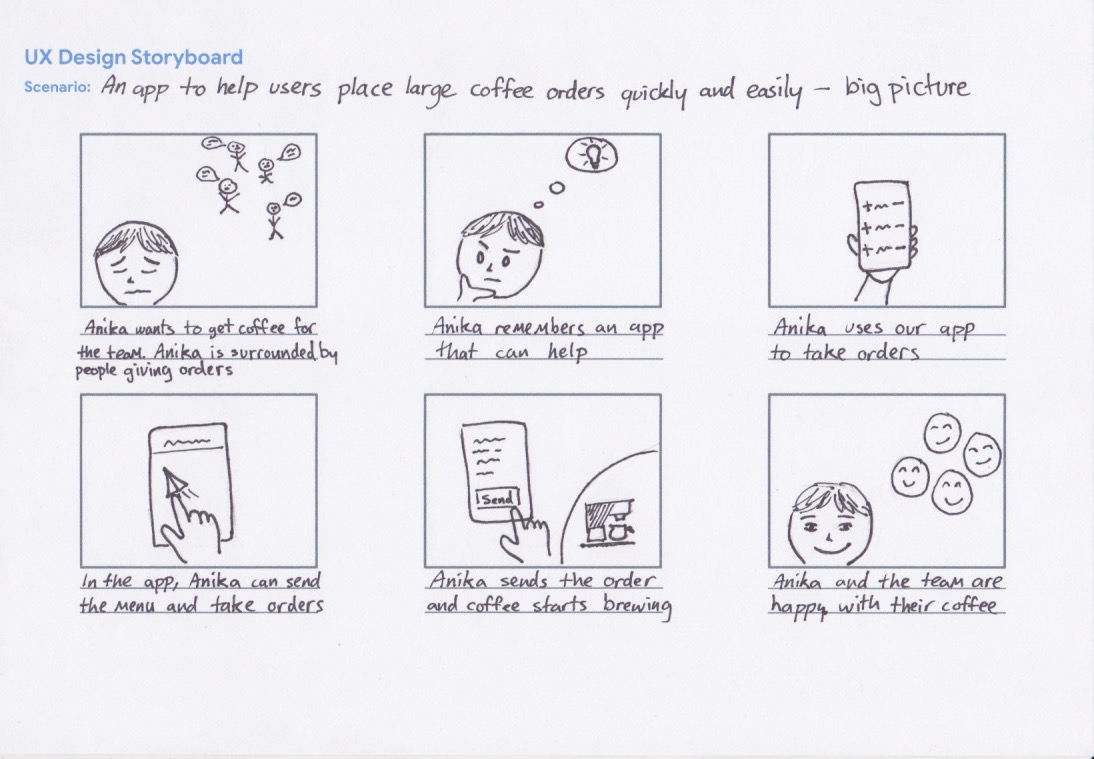 UX Design Storyboard
Scenario: An app to help users place large coffee orders quickly and easily – big picture
Anika wants to get coffee for
the team. Anika is surrounded by
people giving orders
Anika remembers an app
that can help
Anika uses our app
to take orders
Send
In the app, Anika can send
the menu and take orders
Anika sends the order
and coffee starts brewing
Anika and the team are
happy with their coffee